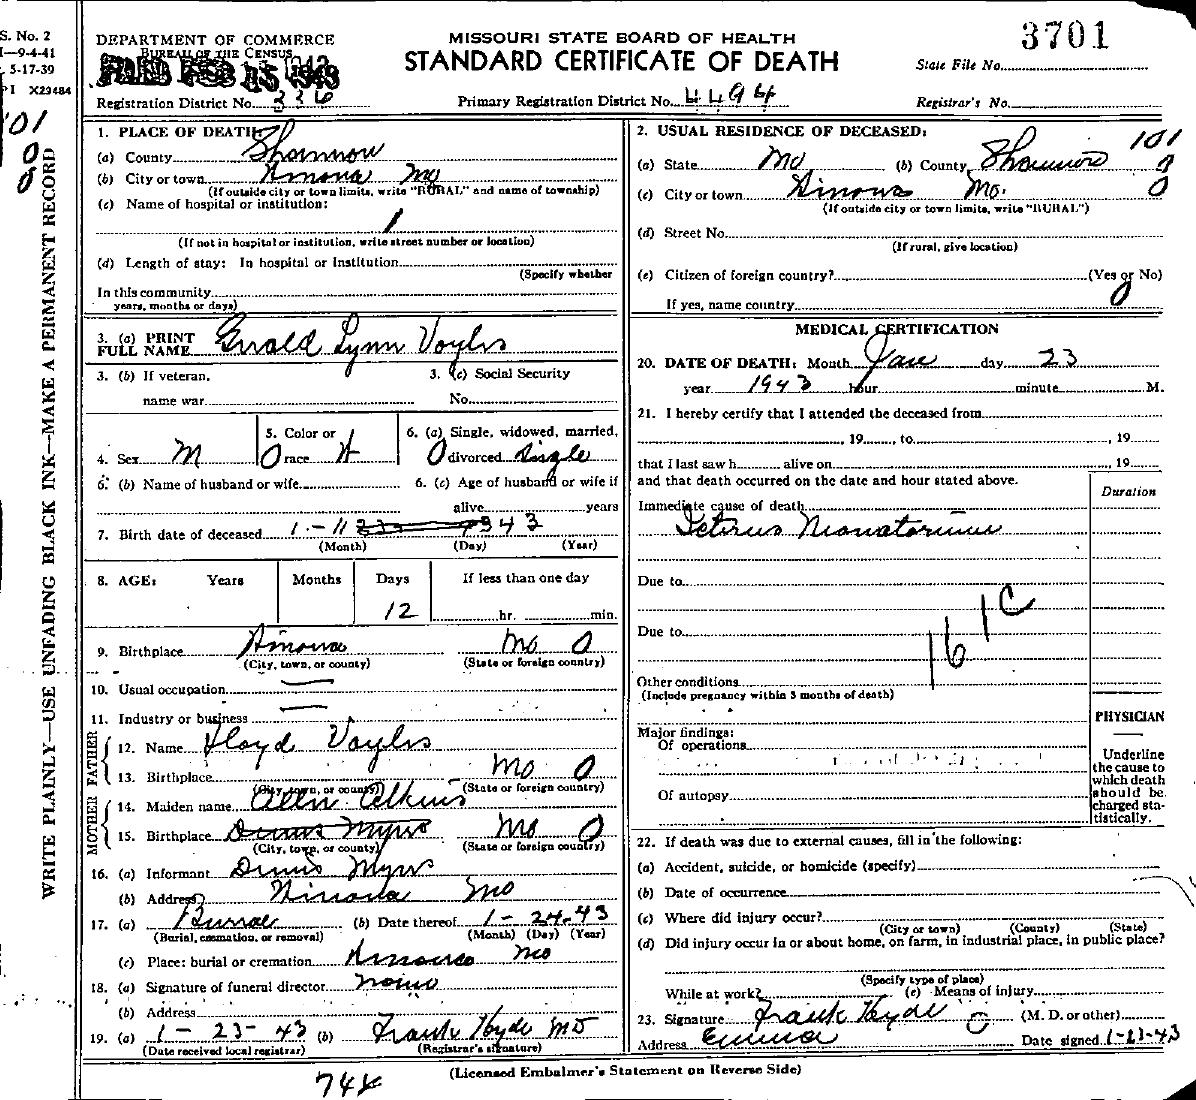 S. No. 2
—9-4-41
5-17-39
PI X29484
101
0
0
WRITE PLAINLY—USE UNFADING BLACK INK—MAKE A PERMANENT RECORD
DEPARTMENT OF COMMERCE
BUREAU OF THE CENSUS
MISSOURI STATE BOARD OF HEALTH
STANDARD CERTIFICATE OF DEATH
3701
State File No.
Registration District No. 336
Primary Registration District No. 4494
Registrar's No.
1. PLACE OF DEATH:
(a) County Shannon
(b) City or town Winona Mo
(If outside city or town limits, write "RURAL" and name of township)
(c) Name of hospital or institution:
1
(If not in hospital or institution, write street number or location)
(d) Length of stay: In hospital or institution
(Specify whether
In this community
years, months or days)
3. (a) PRINT
FULL NAME Gerald Lynn Voyles
3. (b) If veteran,
name war
3. (c) Social Security
No.
4. Sex M
5. Color or
race W
0
6. (a) Single, widowed, married,
0 divorced Single
6. (b) Name of husband or wife
6. (c) Age of husband or wife if
alive years
7. Birth date of deceased 1 - 11 943
(Month) (Day) (Year)
8. AGE: Years Months Days If less than one day
12 hr. min.
9. Birthplace Winona Mo 0
(City, town, or county) (State or foreign country)
10. Usual occupation —
11. Industry or business —
FATHER
12. Name Floyd Voyles
13. Birthplace Mo 0
(City, town, or county) (State or foreign country)
MOTHER
14. Maiden name Allen Adkins
15. Birthplace Dennis Myers Mo 0
(City, town, or county) (State or foreign country)
16. (a) Informant Dennis Myers
(b) Address Winona Mo
17. (a) Burial (b) Date thereof 1-24-43
(Burial, cremation, or removal) (Month) (Day) (Year)
(c) Place: burial or cremation Winona Mo
18. (a) Signature of funeral director None
(b) Address
19. (a) 1-23-43 (b) Frank Hyde MD
(Date received local registrar) (Registrar's signature)
2. USUAL RESIDENCE OF DECEASED:
101
(a) State Mo (b) County Shannon 0
(c) City or town Winona Mo. 0
(If outside city or town limits, write "RURAL")
(d) Street No.
(If rural, give location)
(e) Citizen of foreign country? (Yes or No)
0
If yes, name country
MEDICAL CERTIFICATION
20. DATE OF DEATH: Month Jan day 23
year 1943 hour minute M.
21. I hereby certify that I attended the deceased from
, 19 , to , 19
that I last saw h alive on , 19
and that death occurred on the date and hour stated above.
Duration
Immediate cause of death
Icterus Neonatorium
Due to
161c
Due to
Other conditions
(Include pregnancy within 3 months of death)
Major findings:
Of operations
Of autopsy
PHYSICIAN
—
Underline
the cause to
which death
should be
charged sta-
tistically.
22. If death was due to external causes, fill in the following:
(a) Accident, suicide, or homicide (specify)
(b) Date of occurrence
(c) Where did injury occur?
(City or town) (County) (State)
(d) Did injury occur in or about home, on farm, in industrial place, in public place?
(Specify type of place)
While at work? (e) Means of injury
23. Signature Frank Hyde (M. D. or other)
Address Date signed 1-23-43
(Licensed Embalmer's Statement on Reverse Side)